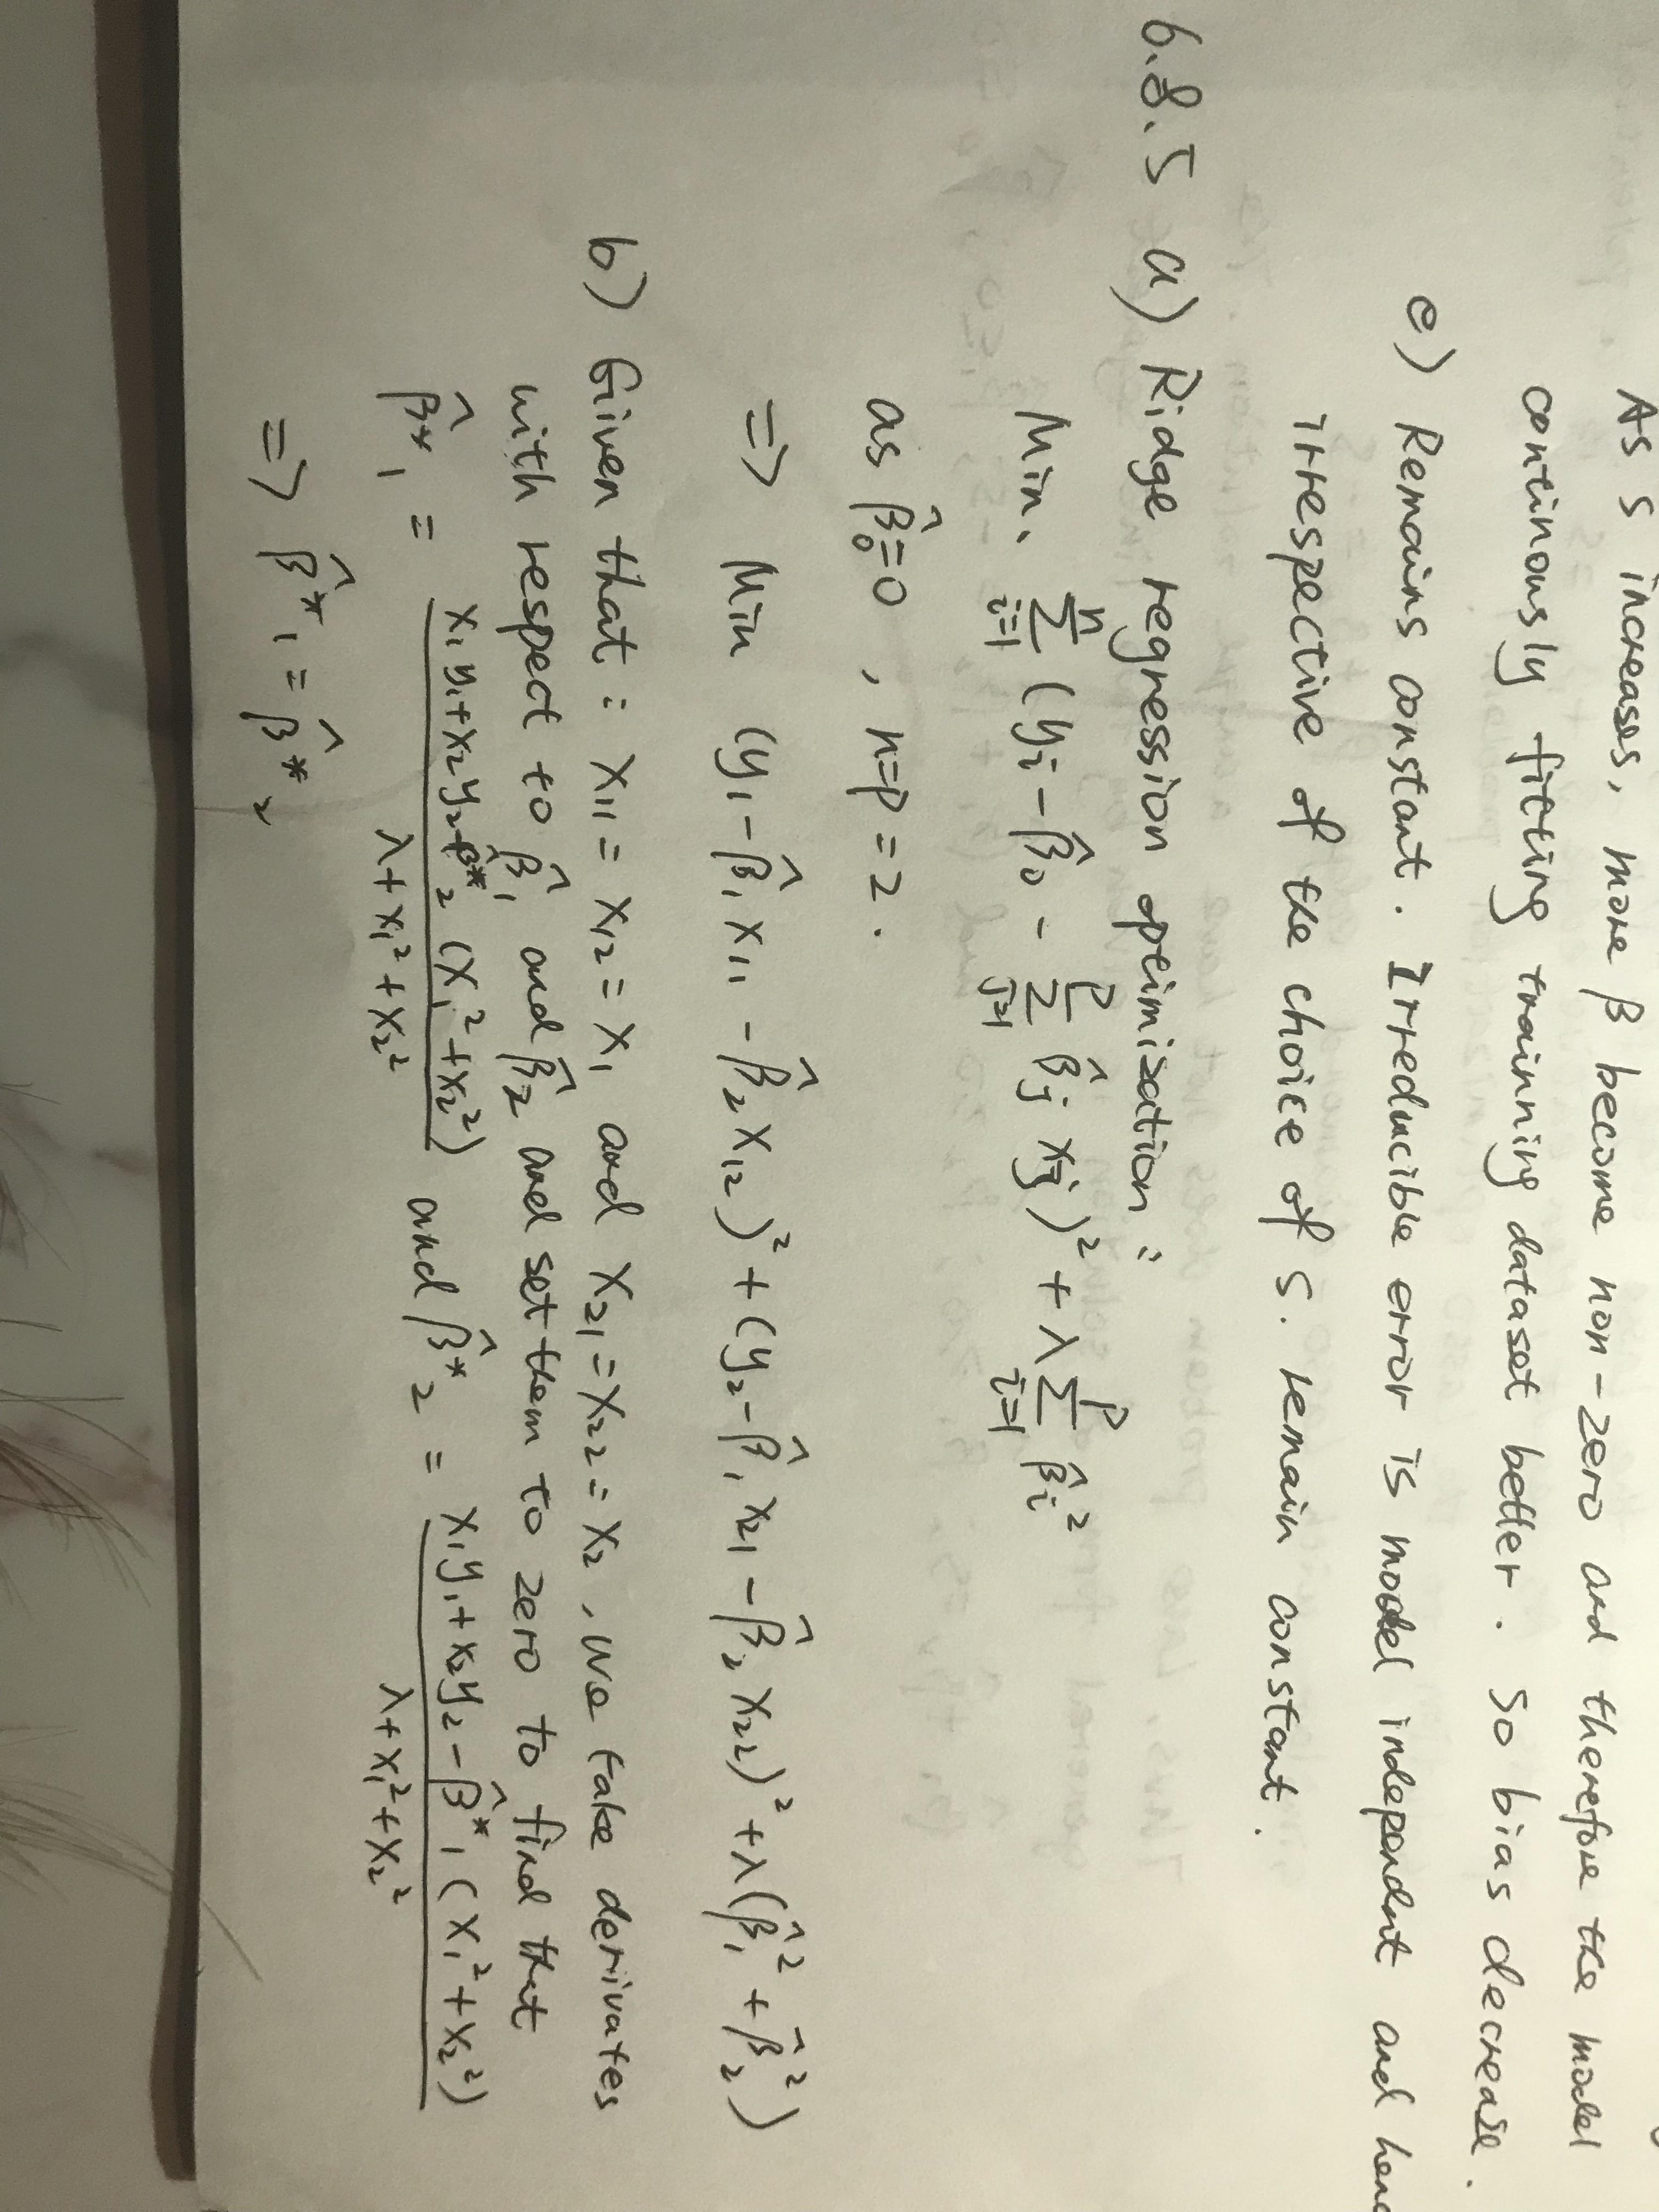 As s increases, more β become non-zero and therefore the model
continously fitting trainning dataset better. So bias decrease.
e) Remains constant. Irreducible error is model independent and henc
irrespective of the choice of s. remain constant.
6.8.5 a) Ridge regression opeimization:
Min. Σ_{i=1}^{n} (yi - β̂0 - Σ_{j=1}^{p} β̂j xj)² + λ Σ_{i=1}^{p} β̂i²
as β̂0=0, n=p=2.
=> Min (y1 - β̂1 x11 - β̂2 x12)² + (y2 - β̂1 x21 - β̂2 x22)² + λ(β̂1² + β̂2²)
b) Given that: x11 = x12 = x1 and x21 = x22 = x2, we take derivates
with respect to β̂1 and β̂2 and set them to zero to find that
β̂*1 = (x1y1 + x2y2 - β̂*2 (x1² + x2²)) / (λ + x1² + x2²) and β̂*2 = (x1y1 + x2y2 - β̂*1 (x1² + x2²)) / (λ + x1² + x2²)
=> β̂*1 = β̂*2